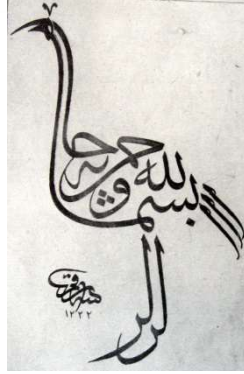 بسم الله الرحمن الرحيم
١٢٢٢